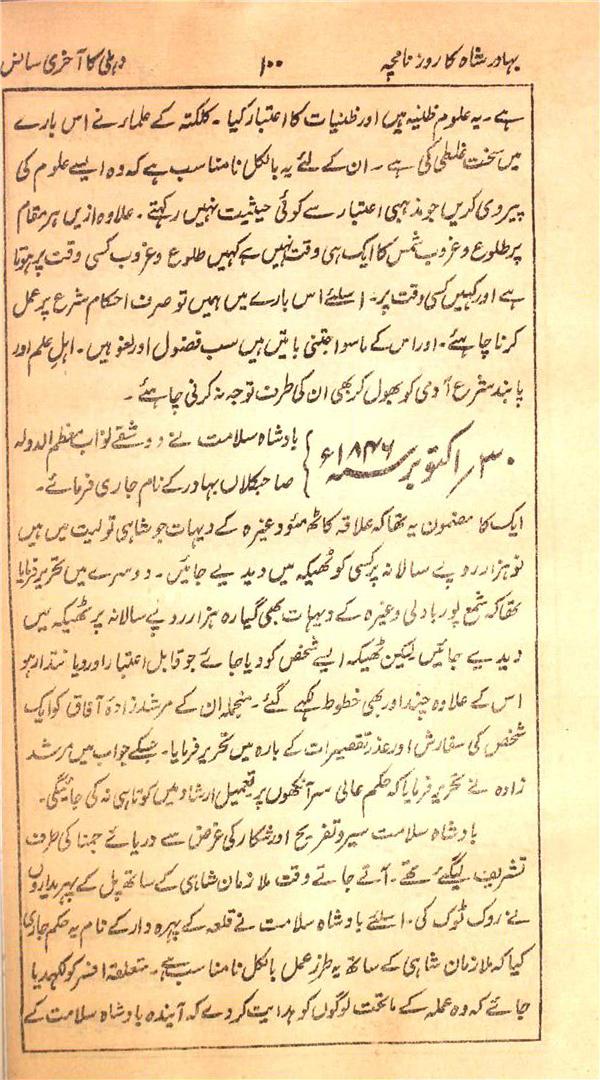 بہادر شاہ کا روزنامچہ ۱۰۰ دہلی کا آخری سانس
ہے۔ یہ علوم ظنیہ ہیں اور ظنیات کا اعتبار کیا۔ کلکتہ کے علماء نے اس بارے
میں سخت غلطی کی ہے۔ ان کے لئے یہ بالکل نامناسب ہے کہ وہ ایسے علوم کی
پیروی کریں جو مذہبی اعتبار سے کوئی حیثیت نہیں رکھتے۔ علاوہ ازیں ہر مقام
پر طلوع و غروب شمس کا ایک ہی وقت نہیں ہے کہیں طلوع و غروب کسی وقت پر ہوتا
ہے اور کہیں کسی وقت پر۔ اسلئے اس بارے میں ہمیں تو صرف احکام شرع پر عمل
کرنا چاہئے۔ اور اس کے ماسوا جتنی باتیں ہیں سب فضول اور لغو ہیں۔ اہل علم اور
پابند شرع آدمی کو بھول کر بھی ان کی طرف توجہ نہ کرنی چاہئے۔
۳۰/ اکتوبر سنہ ۱۸۴۶ء } بادشاہ سلامت نے دو شقے نواب معظم الدولہ
صاحبکلاں بہادر کے نام جاری فرمائے۔
ایک کا مضمون یہ تھا کہ علاقہ کاٹھ مئو وغیرہ کے دیہات جو شاہی تولیت میں ہیں
نو ہزار روپے سالانہ پر کسی کو ٹھیکہ میں دیدیے جائیں۔ دوسرے میں تحریر فرمایا
تھا کہ شمع پور بادلی وغیرہ کے دیہات بھی گیارہ ہزار روپے سالانہ پر ٹھیکہ میں
دیدیے جائیں لیکن ٹھیکہ ایسے شخص کو دیا جائے جو قابل اعتبار اور دیانتدار ہو
اس کے علاوہ چند اور بھی خطوط لکھے گئے۔ منجملہ ان کے مرشد زادۂ آفاق کو ایک
شخص کی سفارش اور عذر تقصیرات کے بارہ میں تحریر فرمایا۔ جسکے جواب میں مرشد
زادہ نے تحریر فرمایا کہ حکم عالی سر آنکھوں پر تعمیل ارشاد میں کوتاہی نہ کی جائیگی۔
بادشاہ سلامت سیر و تفریح اور شکار کی غرض سے دریائے جمنا کی طرف
تشریف لیگئے تھے۔ آتے جاتے وقت ملازمان شاہی کے ساتھ پل کے پہریداروں
نے روک ٹوک کی۔ اسلئے بادشاہ سلامت نے قلعہ کے پہرہ دار کے نام یہ حکم جاری
کیا کہ ملازمان شاہی کے ساتھ یہ طرز عمل بالکل نامناسب ہے۔ متعلقہ افسر کو لکھدیا
جائے کہ وہ عملہ کے ماتحت لوگوں کو ہدایت کر دے کہ آیندہ بادشاہ سلامت کے